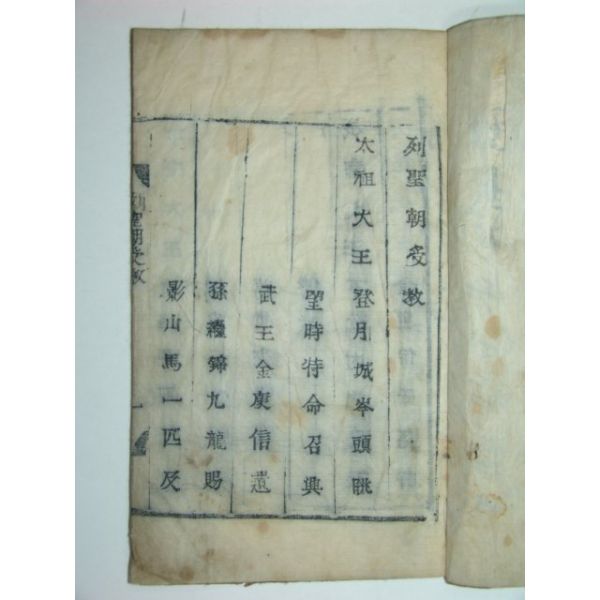 列聖朝受教
太祖大王登月城岑頭眺
望時待命召興
武王金庾信遺
孫續錦九龍賜
影山馬一匹反
列聖朝受教
一